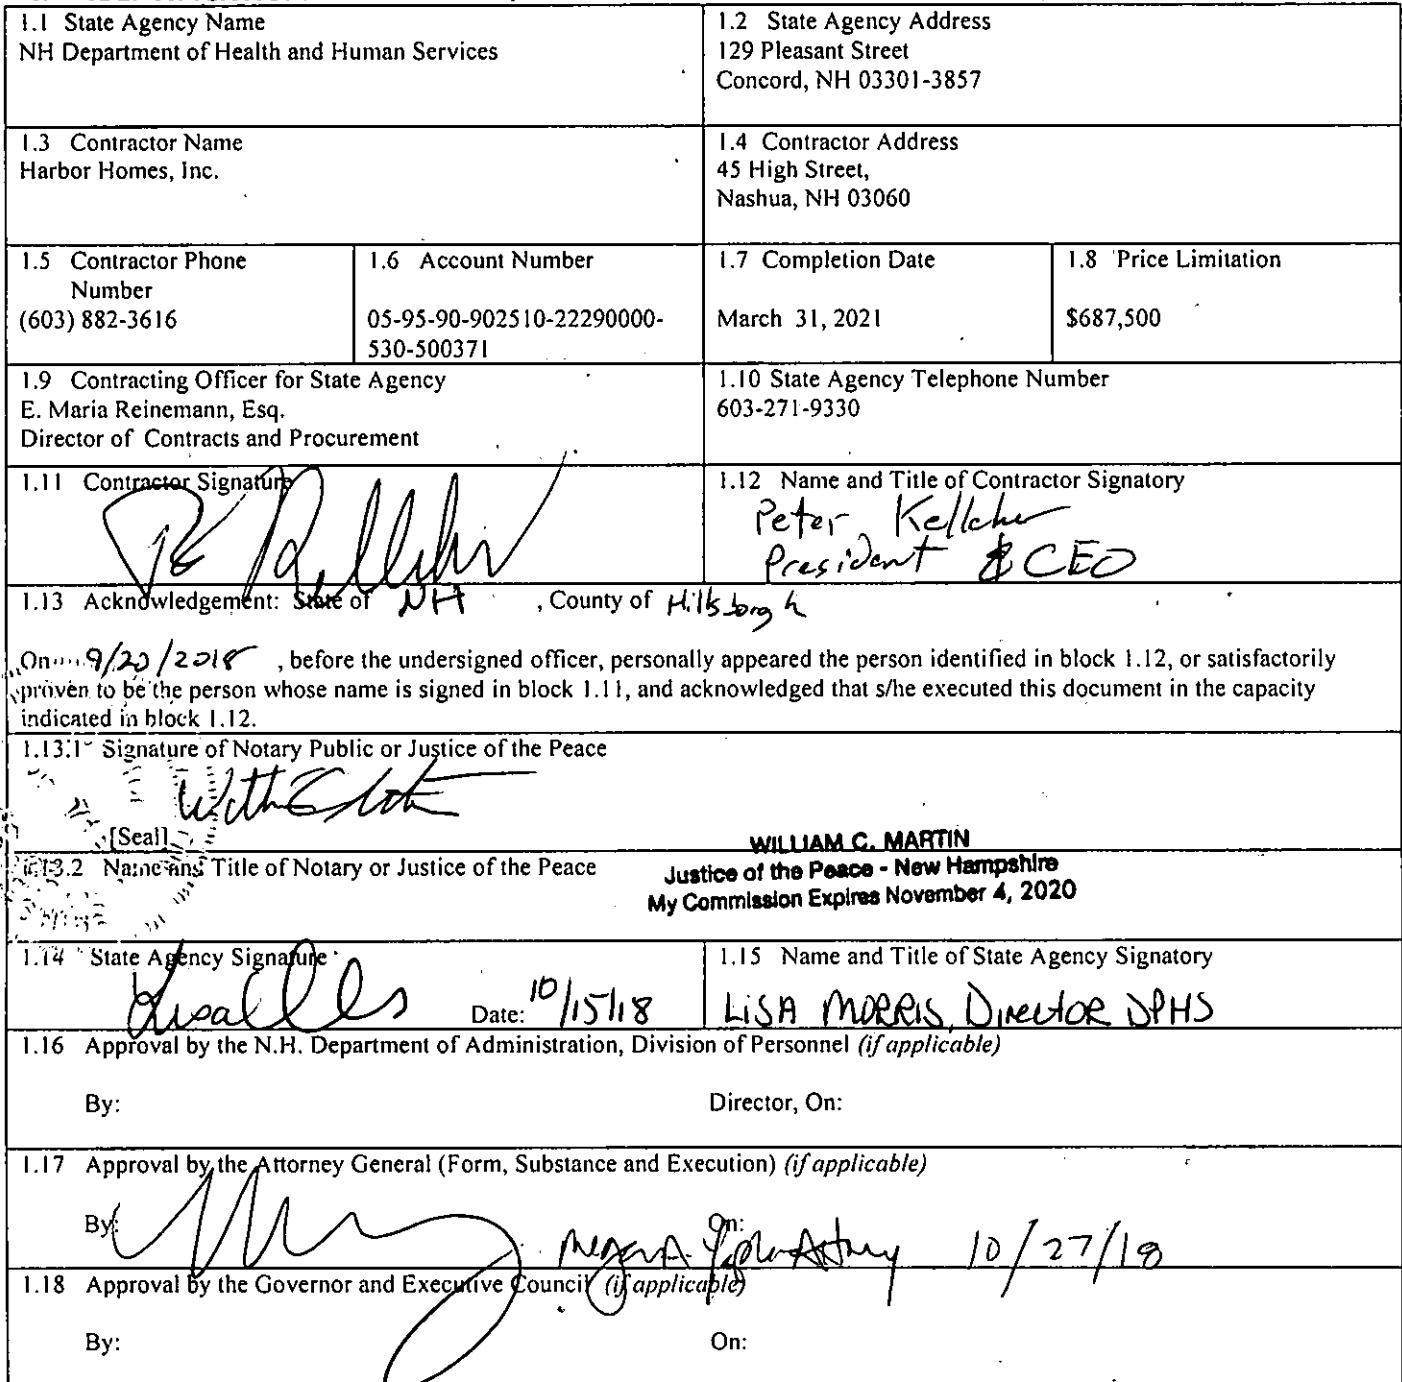 1.1 State Agency Name
NH Department of Health and Human Services
1.2 State Agency Address
129 Pleasant Street
Concord, NH 03301-3857
1.3 Contractor Name
Harbor Homes, Inc.
1.4 Contractor Address
45 High Street,
Nashua, NH 03060
1.5 Contractor Phone
Number
(603) 882-3616
1.6 Account Number
05-95-90-902510-22290000-
530-500371
1.7 Completion Date
March 31, 2021
1.8 Price Limitation
$687,500
1.9 Contracting Officer for State Agency
E. Maria Reinemann, Esq.
Director of Contracts and Procurement
1.10 State Agency Telephone Number
603-271-9330
1.11 Contractor Signature
1.12 Name and Title of Contractor Signatory
Peter Kelleher
President & CEO
1.13 Acknowledgement: State of NH , County of Hillsborough
On 9/20/2018 , before the undersigned officer, personally appeared the person identified in block 1.12, or satisfactorily
proven to be the person whose name is signed in block 1.11, and acknowledged that s/he executed this document in the capacity
indicated in block 1.12.
1.13.1 Signature of Notary Public or Justice of the Peace
[Seal]
WILLIAM C. MARTIN
Justice of the Peace - New Hampshire
My Commission Expires November 4, 2020
1.13.2 Name and Title of Notary or Justice of the Peace
1.14 State Agency Signature
Date: 10/15/18
1.15 Name and Title of State Agency Signatory
LISA MORRIS, DIRECTOR DPHS
1.16 Approval by the N.H. Department of Administration, Division of Personnel (if applicable)
By:
Director, On:
1.17 Approval by the Attorney General (Form, Substance and Execution) (if applicable)
By:
On:
10/27/18
1.18 Approval by the Governor and Executive Council (if applicable)
By:
On: